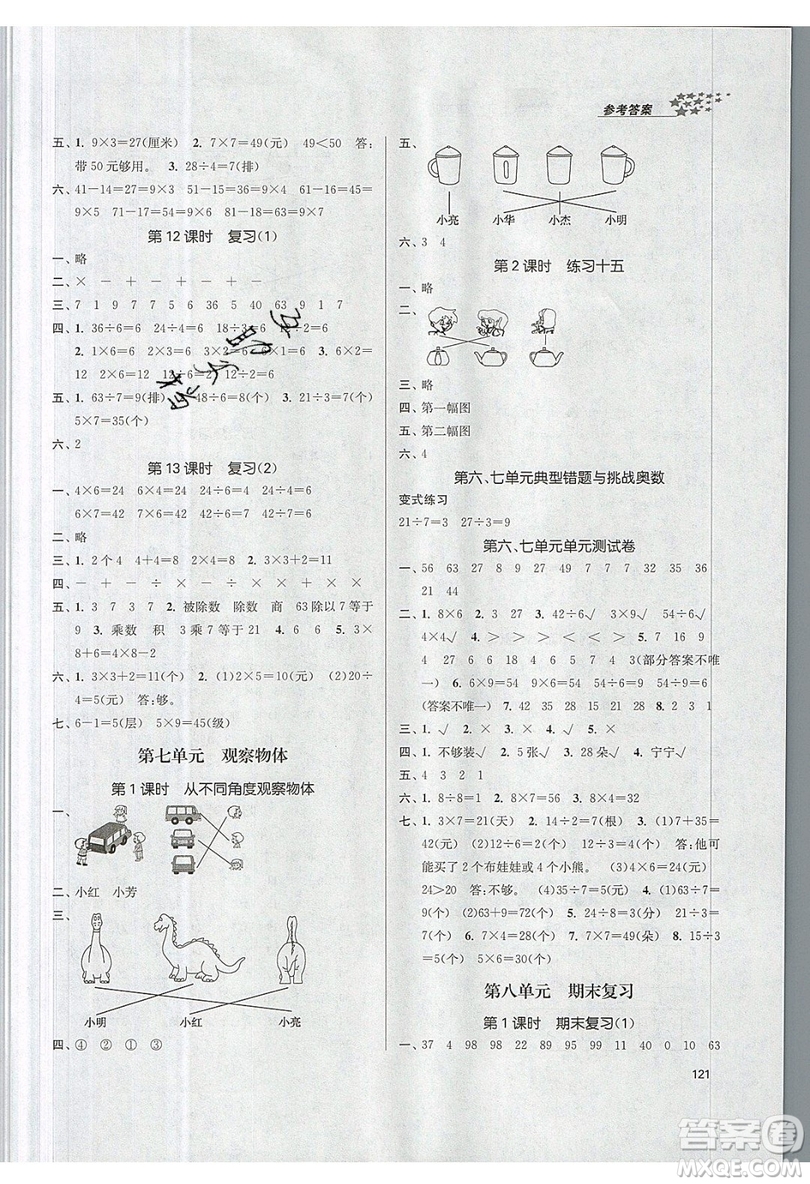 参考答案
五、1. 9×3=27(厘米) 2. 7×7=49(元) 49<50 答:
带 50 元够用。 3. 28÷4=7(排)
六、41-14=27=9×3 51-15=36=9×4 61-16=45=
9×5 71-17=54=9×6 81-18=63=9×7
第 12 课时 复习(1)
一、略
二、× - + - + - × -
三、7 1 9 7 5 7 36 5 40 63 9 1 7
四、1. 36÷6=6 24÷6=4 6÷6=1
2. 1×6=6 2×6=12 3×2=6 6×2=
12 12÷2=6 12÷2=6 12÷2=6
五、1. 63÷7=9(排) 2. 48÷6=8(个) 3. 21÷7=3(个)
5×7=35(个)
六、2
第 13 课时 复习(2)
一、4×6=24 5×6=30 4×7=28 5×7=35
6×7=42 7×7=49
二、略
三、1. 2 个 4 4+4=8 2. 4 个 2 2+2+2+2=8
四、- + - ÷ × - ÷ + ÷ ×
五、1. 3 7 3 7 2. 被除数 除数 商 63除以7等于
9 3. 乘数 积 3乘7等于21 4. 6+6+6+6
8+8+8+8+8+8 3×6+3 8×9-8
六、1. 3×3+2=11 2. (1)2×5=10(元) (2)20÷
4=5(元) 答:够。
七、6-1=5(层) 5×9=45(级)
第七单元 观察物体
第 1 课时 从不同角度观察物体
一、
二、小红 小芳
三、
小明 小红 小亮
四、④ ② ① ③
五、
小亮 小华 小杰 小明
六、3 4
第 2 课时 练习十五
一、略
二、
三、略
四、第一幅图
五、第二幅图
六、4
第六、七单元典型错题与挑战奥数
变式练习
21÷7=3 27÷3=9
第六、七单元单元测试卷
一、56 63 27 8 9 27 49 7 7 8 36 36
21 44
二、1. 8×6 2. 4×9 3. 27÷3√ 3×9√ 54÷6√
4×4√ 4. > > > < < > 5. 7 9 16
4 27 6 8 4 1 9 3(部分答案不唯
一) 6. 6×9=54 9×6=54 54÷6=9 54÷9=6
(答案不唯一) 7. 42 35 28 15 8. 2 3 2 1
三、1. √ 2. × 3. × 4. × 5. √
四、1. 不够装√ 2. 5 张√ 3. 28 朵√ 4. 宁宁√
五、4 3 2 1
六、1. 8÷8=1 2. 8×7=56 3. 8×4=32
七、1. 3×7=21(天) 2. 14÷2=7(根) 3. (1)7+35=
42(元) (2)12÷6=2(个) 12÷3=4(个) 答:他可
能买了 2 个布娃娃或 4 个小熊。 (3)4×6=24(元)
24>20 答:不够。 (4)35÷7=5(元) 4. (1)63÷7=
9(个) (2)63+9=72(个) 5. 24÷8=3(分) 24÷3=
8(个) 6. 7×4=28(元) 7. 7×7=49(朵) 8. 15÷3=
5(个) 5×6=30(个)
第八单元 期末复习
第 1 课时 期末复习(1)
一、37 4 98 98 22 95 95 99 10 10 63
121
答案圈
MXQE.COM